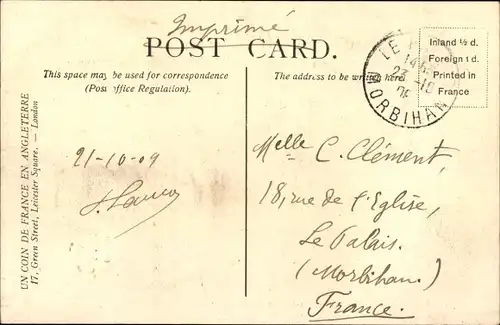 Imprimé
POST CARD.
This space may be used for correspondence
(Post Office Regulation).
The address to be written here.
Inland ½ d.
Foreign 1 d.
Printed in
France
LE
MORBIHAN
21-10-09
Melle C. Clément,
18, rue de l'Eglise,
Le Palais.
(Morbihan.)
France.
UN COIN DE FRANCE EN ANGLETERRE
17, Green Street, Leicester Square. — London